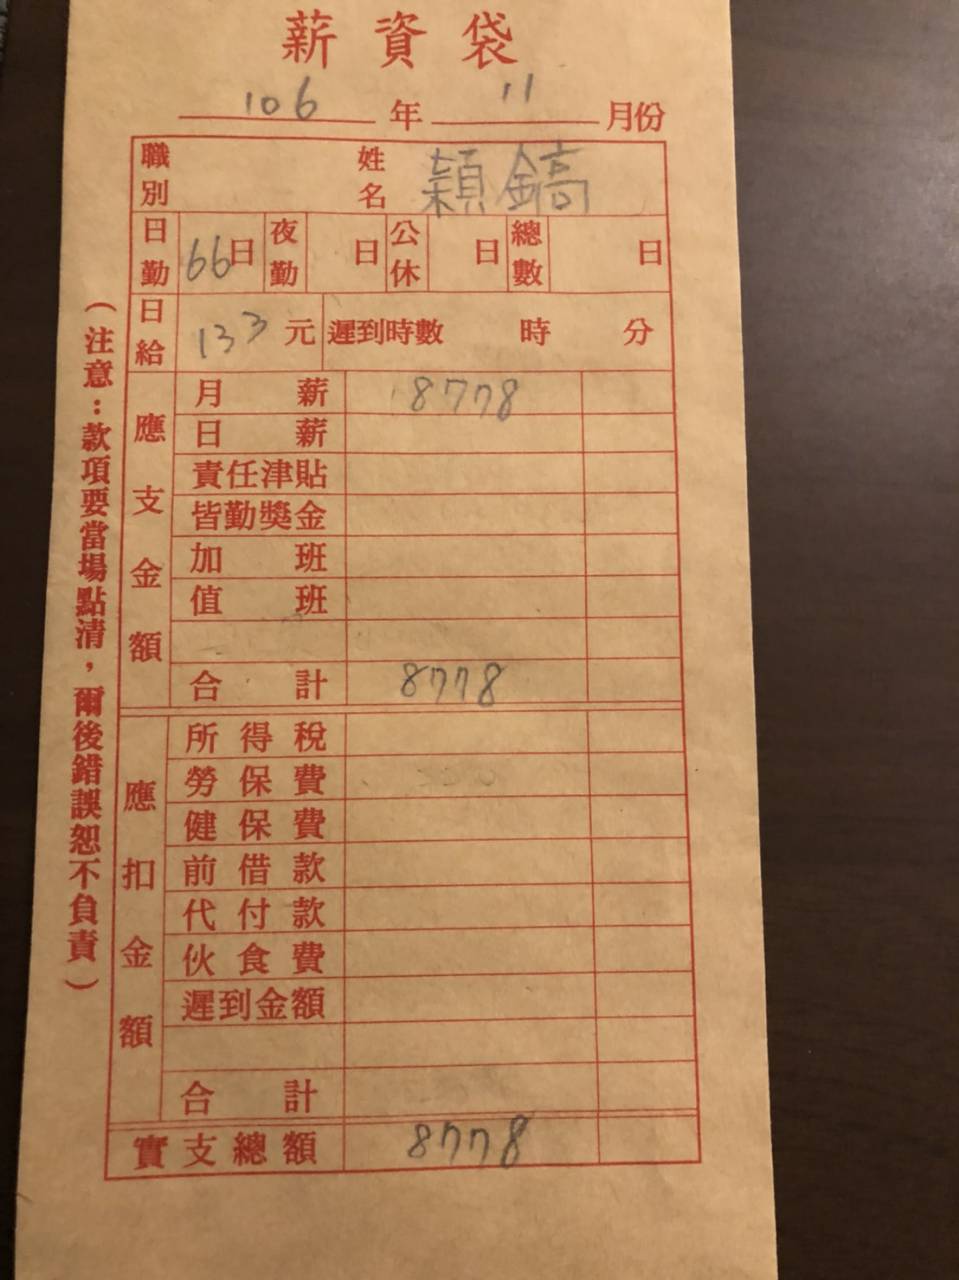 薪資袋
106 年 11 月份
職別 姓名 穎鎬
日勤 66日 夜勤 日 公休 日 總數 日
日給 133 元 遲到時數 時 分
應支金額
月薪 8778
日薪
責任津貼
皆勤獎金
加班
值班
合計 8778
應扣金額
所得稅
勞保費
健保費
前借款
代付款
伙食費
遲到金額
合計
實支總額 8778
（注意：款項要當場點清，爾後錯誤恕不負責）